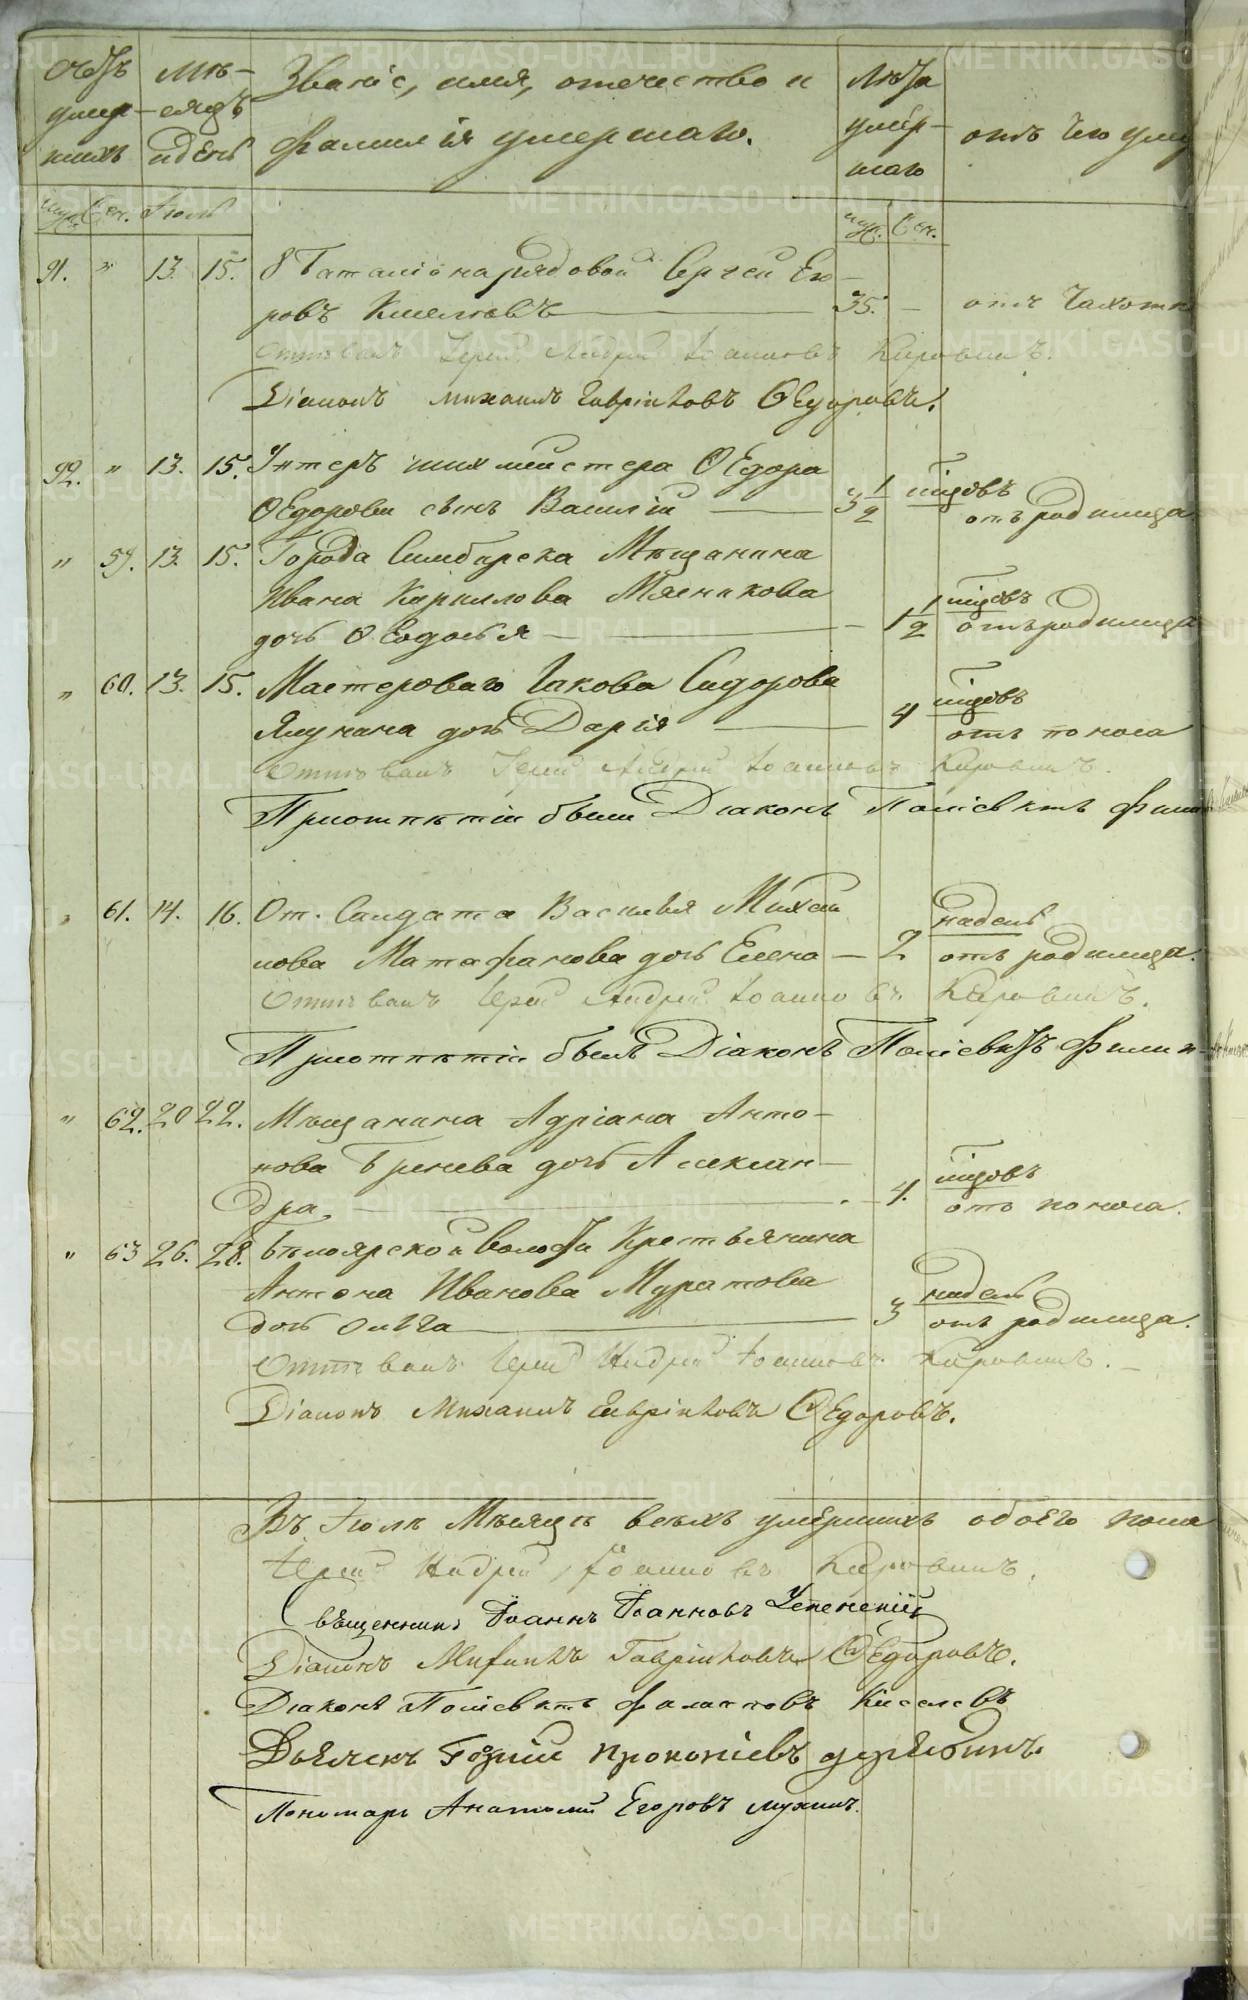 Счетъ Мѣ- Званіе, имя, отечество и Лѣта
умер- сяцъ умер- отъ чего уме
шихъ и день фамилія умершаго. шаго
муж. жен. Іюль муж. жен.
91. " 13. 15. 8 Баталіона рядовой Сергей Ек
ровъ Киселювъ 35. — отъ чахотк
Отпѣвалъ Іерей Андрей Іоанновъ Каровинъ.
Діаконъ михаилъ гаврііловъ Ѳедоровъ.
92. " 13. 15. Унтеръ шихмейстера Ѳедора
Ѳедорова сынъ Василій 3 1/2 мцовъ
отъ родимца
" 59. 13. 15. Города Симбирска Мѣщанина
Ивана Кирилова Мясникова
дочь Ѳеодосья 1 1/2 мцовъ
отъ родимца
" 60. 13. 15. Мастероваго Іакова Сидорова
Ялунина дочь Дарія 4 мцовъ
отъ поноса
Отпѣвалъ Іерей Андрей Іоанновъ Каровинъ.
Приотпѣтіи были Діаконъ Поліевктъ Фил
" 61. 14. 16. От. Салдата Василья Михай
лова Матафанова дочь Елена — 2 надель
отъ родимца.
Отпѣвалъ Іерей Андрей Іоанновъ Каровинъ.
Приотпѣтіи былъ Діаконъ Поліевктъ Фили
" 62. 20 22. Мѣщанина Адріана Анто-
нова Бренева дочь Алексан-
дра. 4. мцовъ
отъ поноса.
" 63 26. 28. Бѣлоярской волости Крестьянина
Антона Иванова Муратова
дочь Олга 3 надель
отъ родимца.
Отпѣвалъ Іерей Андрей Іоанновъ Каровинъ. —
Діаконъ Михаилъ гаврііловъ Ѳедоровъ.
Въ Іюлѣ Мѣсяцѣ всѣхъ умершихъ обоего пола
Іерей Андрей Іоанновъ Каровинъ.
Священникъ Іоаннъ Іоанновъ Успенскій
Діаконъ Михаилъ Гаврііловъ Ѳедоровъ.
Діаконъ Поліевктъ Филатовъ Киселевъ
Дьячекъ Прокопіевъ
Пономарь Анатолій Егоровъ мухинъ.
METRIKI.GASO-URAL.RU